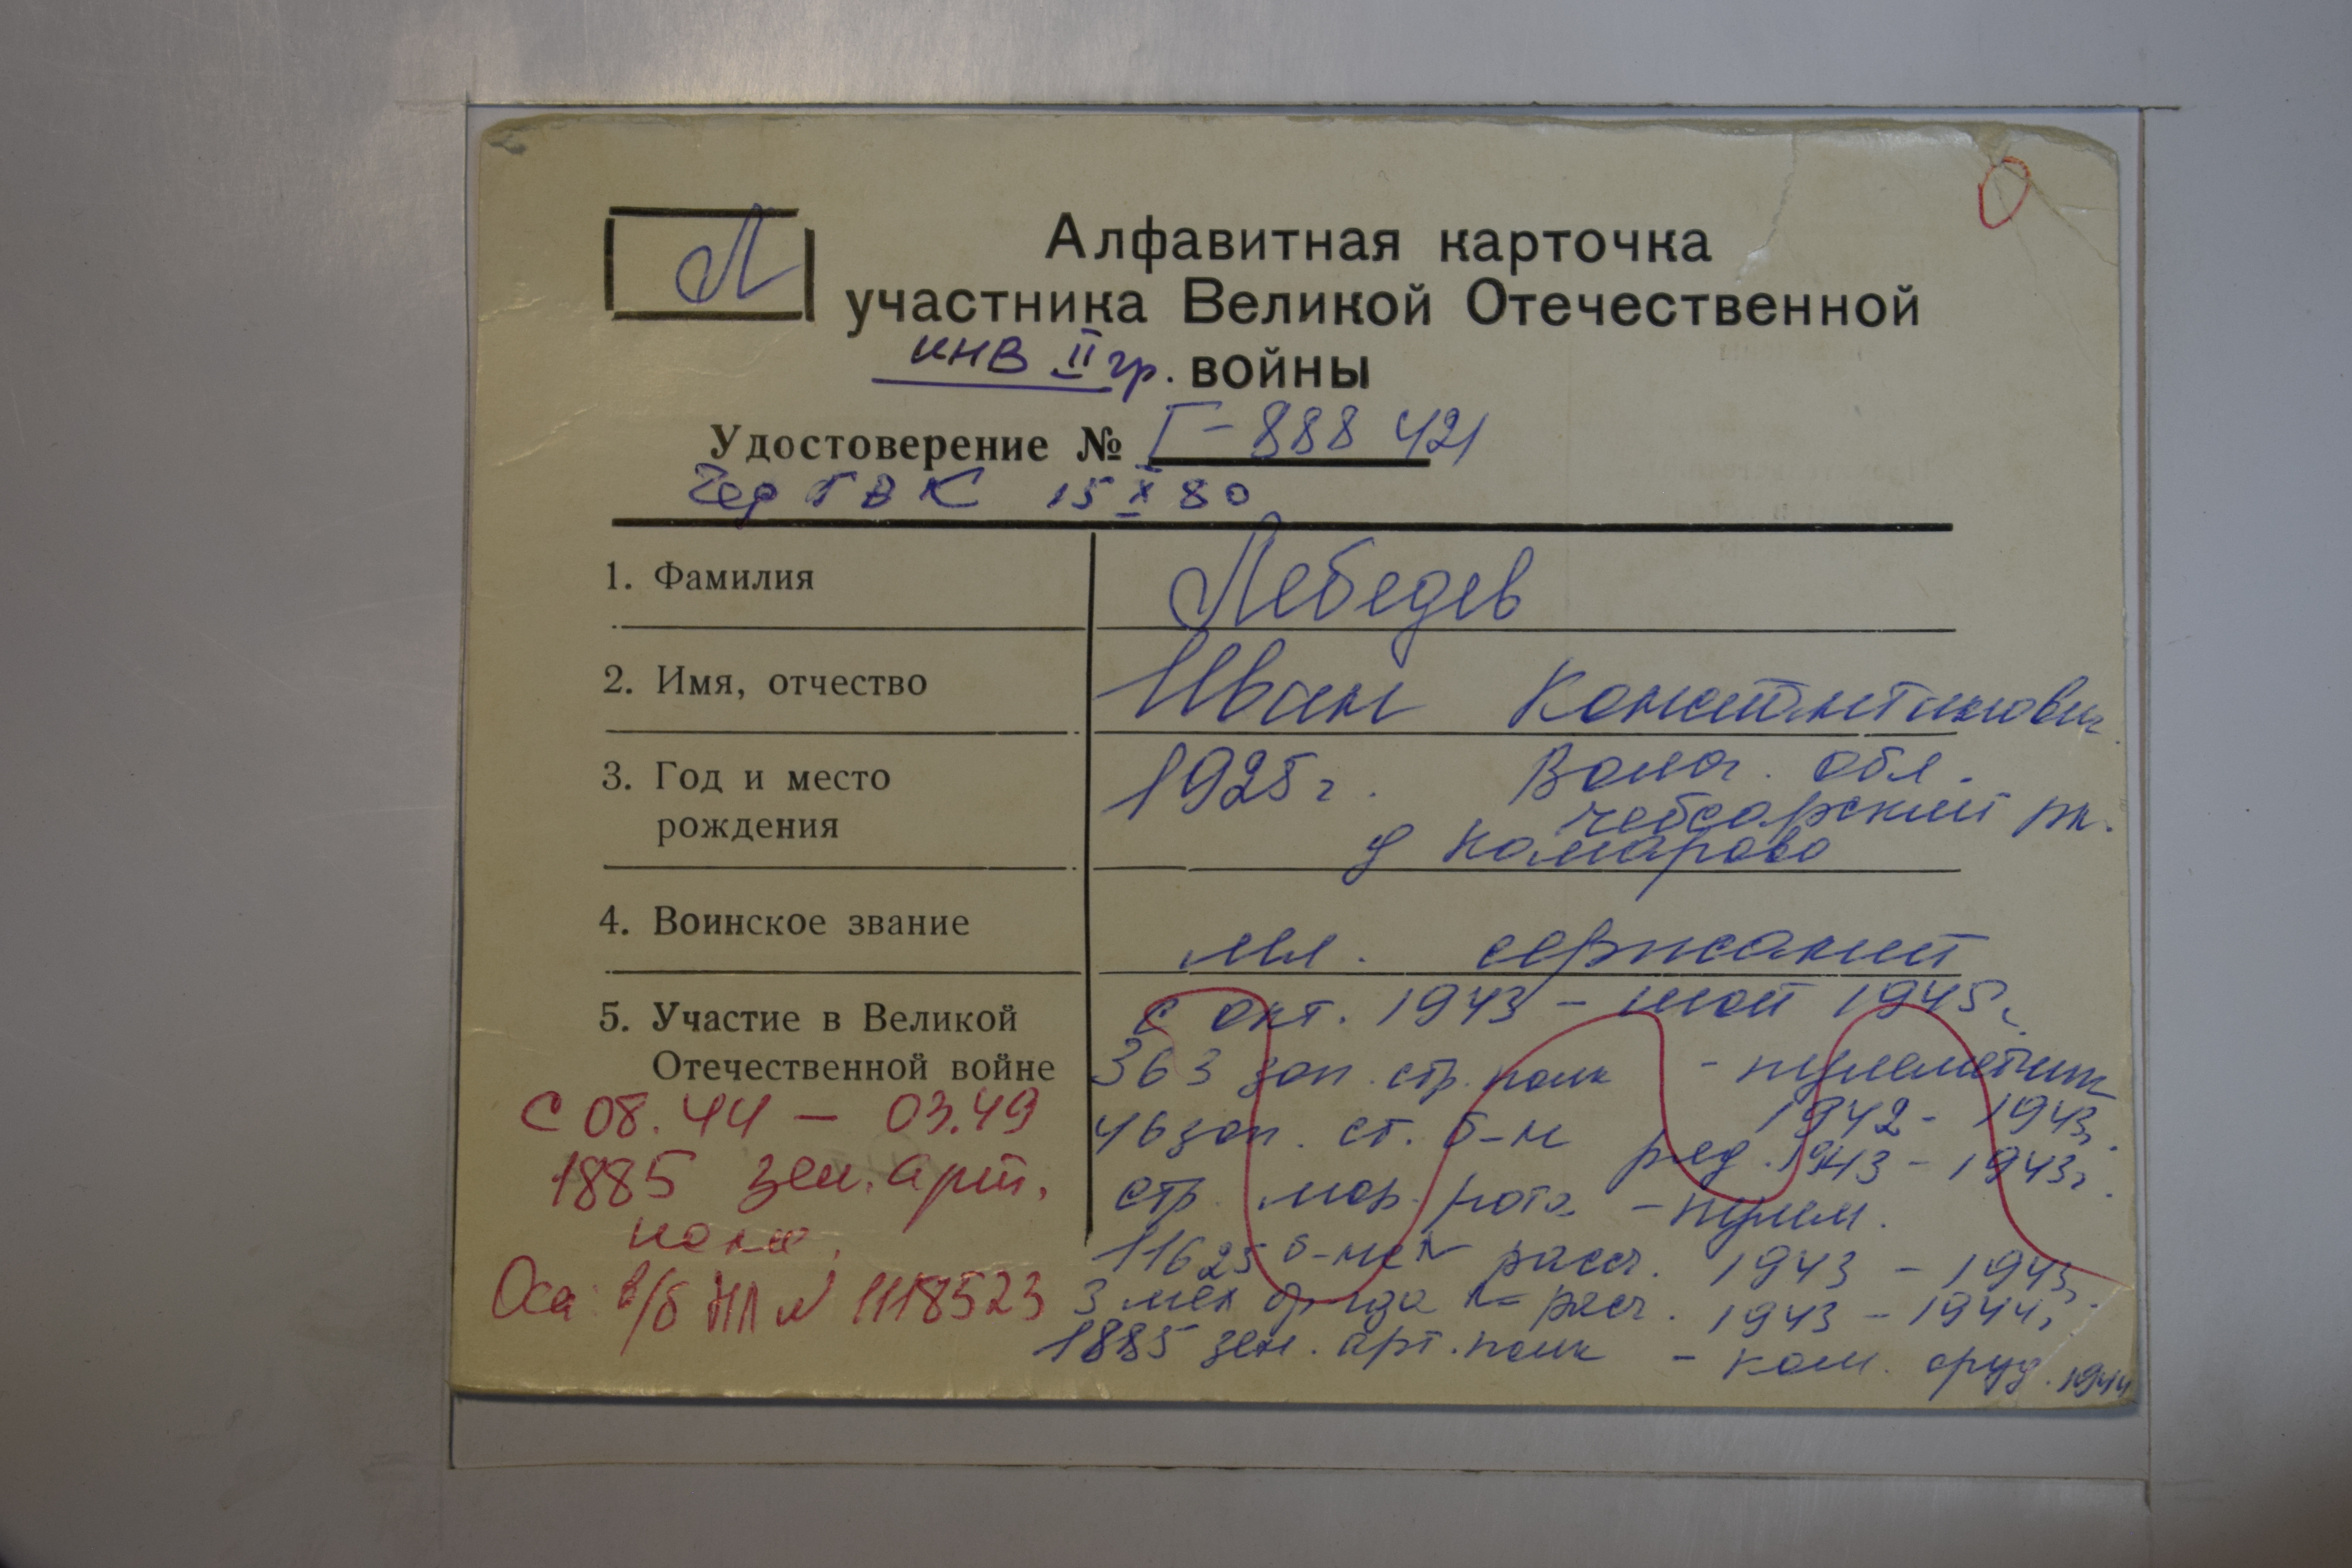 Л
Алфавитная карточка
участника Великой Отечественной
инв II гр. войны
Удостоверение № Г-888 421
Чер ГВК 15 X 80
1. Фамилия
Лебедев
2. Имя, отчество
Иван Константинович
3. Год и место
рождения
1925 г. Волог. обл.
Чебсарский рн.
д Комарово
4. Воинское звание
мл. сержант
5. Участие в Великой
Отечественной войне
с окт. 1943 - май 1945 г.
363 зап. стр. полк - пулеметчик
1942 - 1943г.
46 зап. ст. б-н ряд. 1943 - 1943г.
стр. мар. рота - пулем.
11625 б-не расч. 1943 - 1943г.
3 мех бр-гда расч. 1943 - 1944г.
1885 зен. арт. полк - ком. оруд. 1944
С 08.44 - 03.49
1885 зен. арт.
полк.
Осн: в/б НЛ № 1118523